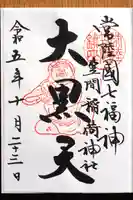 常陸國七福神
笠間稲荷神社
大黒天
令和五年十月二十三日